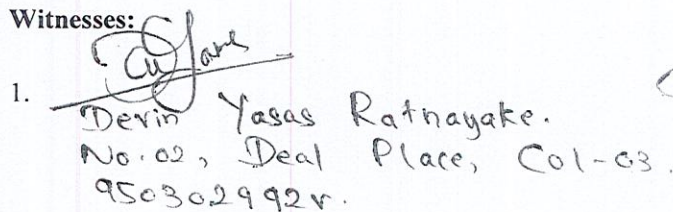 Witnesses:
1.
Devin Yasas Ratnayake.
No. 02, Deal Place, Col-03.
950302992v.